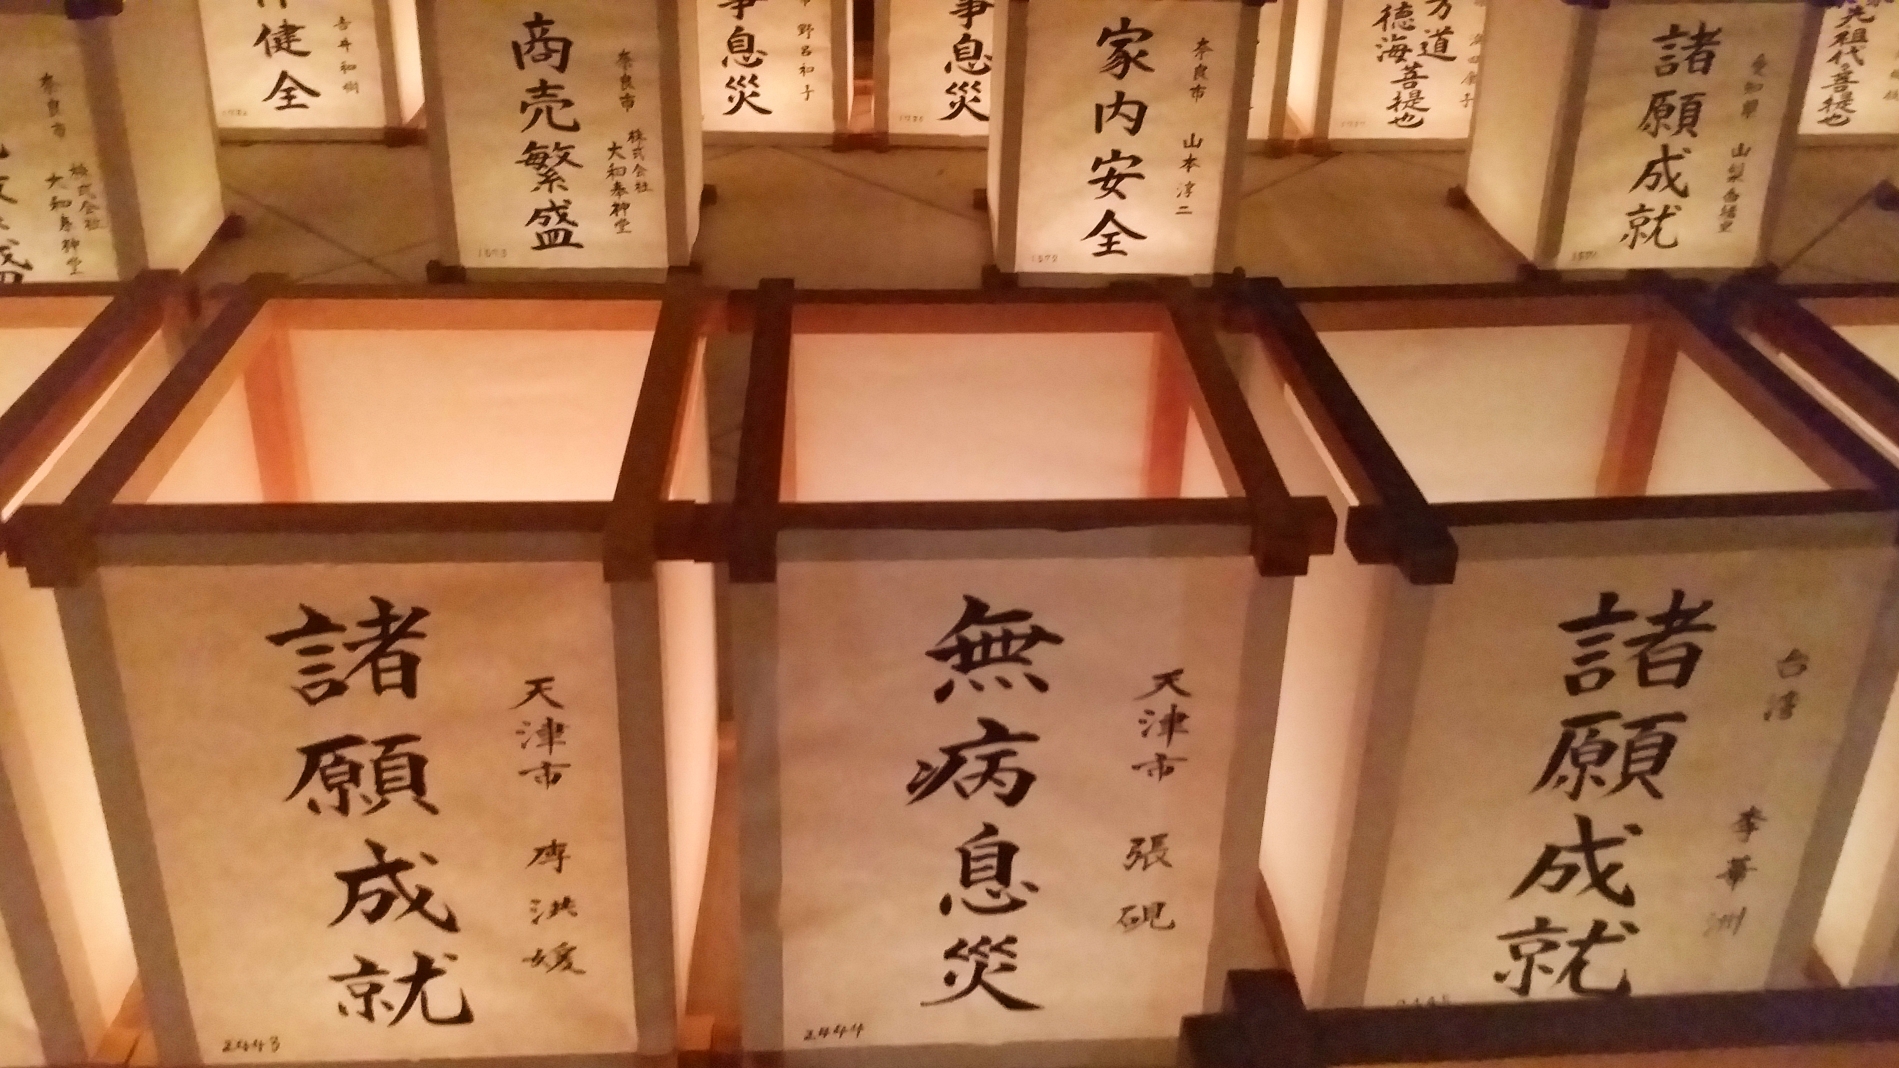 健全
吉井和樹
奈良市
株式会社
大和泰神堂
奈良市
株式会社
大和泰神堂
商売繁盛
1573
野呂和子
事息災
事息災
奈良市 山本淳二
家内安全
1572
道
徳海菩提也
愛知県 山梨
諸願成就
1571
先祖代々菩提也
天津市 専洪媛
諸願成就
2443
天津市 張硯
無病息災
2444
台湾 李華洲
諸願成就
2445